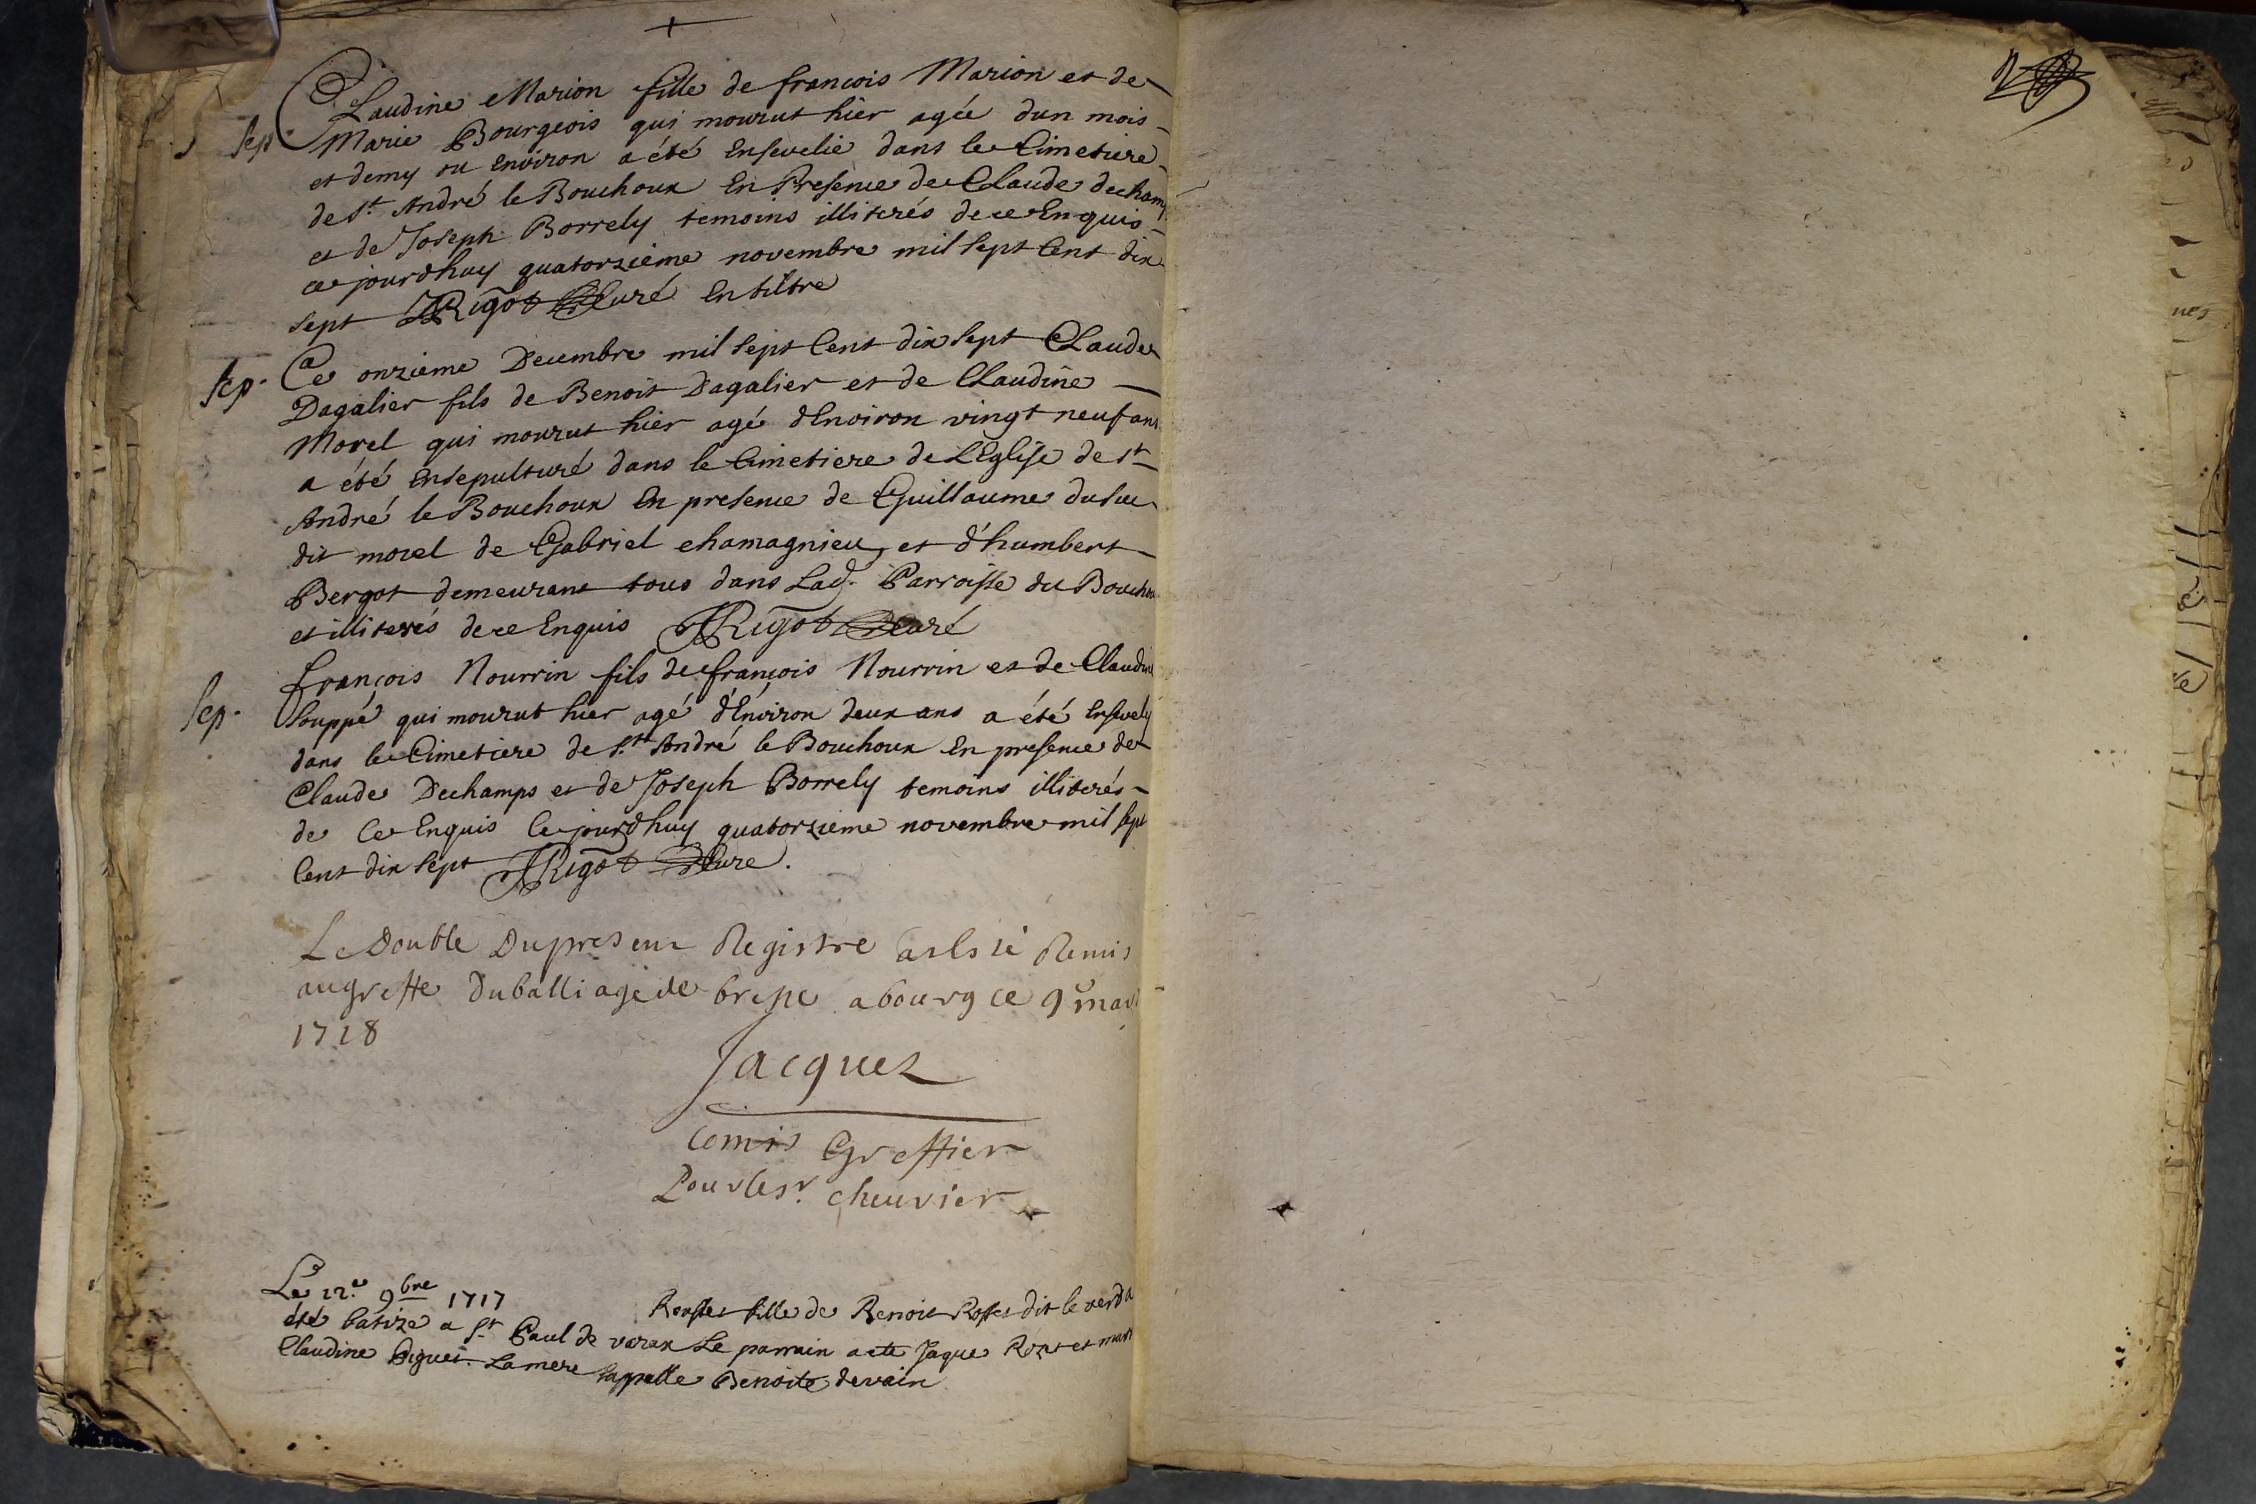 Claudine Marion fille de françois Marion et de
Sep. Marie Bourgeois qui mourut hier agée dun mois
et demy ou Environ a été Ensevelie dans le Cimetiere
de St. André le Bouchoux En Presence de Claude dechamps
et de Joseph Borrely temoins illiterés de ce Enquis
ce jourdhuy quatorzième novembre mil sept Cent dix
sept JRigot Curé En tiltre
Sep. Ce onzieme Decembre mil sept Cent dix sept Claude
Dagalier fils de Benoit Dagalier et de Claudine
Morel qui mourut hier agé dEnviron vingt neuf ans
a été Ensepulturé dans le Cimetiere de LEglise de St
André le Bouchoux En presence de Guillaume
dit morel de Gabriel chamagnieu, et d'humbert
Bergot demeurant tous dans Lad. Parroisse du Bouchoux
et illiterés de ce Enquis JRigot Curé
françois Nourrin fils de françois Nourrin et de Claudine
Sep. Souppé qui mourut hier agé d'Environ deux ans a été Ensevely
dans le Cimetiere de St. André le Bouchoux En presence de
Claude Dechamps et de Joseph Borrely temoins illiterés
de Ce Enquis Ce jourdhuy quatorzieme novembre mil sept
Cent dix sept JRigot Curé.
Le Double Du present Registre a esté Remis
au greffe Du balliage de bresse a bourg ce 9e mars
1718
Jacquet
Comis Greffier
Pour le sr. cheuvier
Le 12.e 9bre 1717 fille de Benoit dit le
été batizé a St. Paul de varax Le parrain a eté Jaque et
Claudine Piguet La mere sappelle Benoite devain